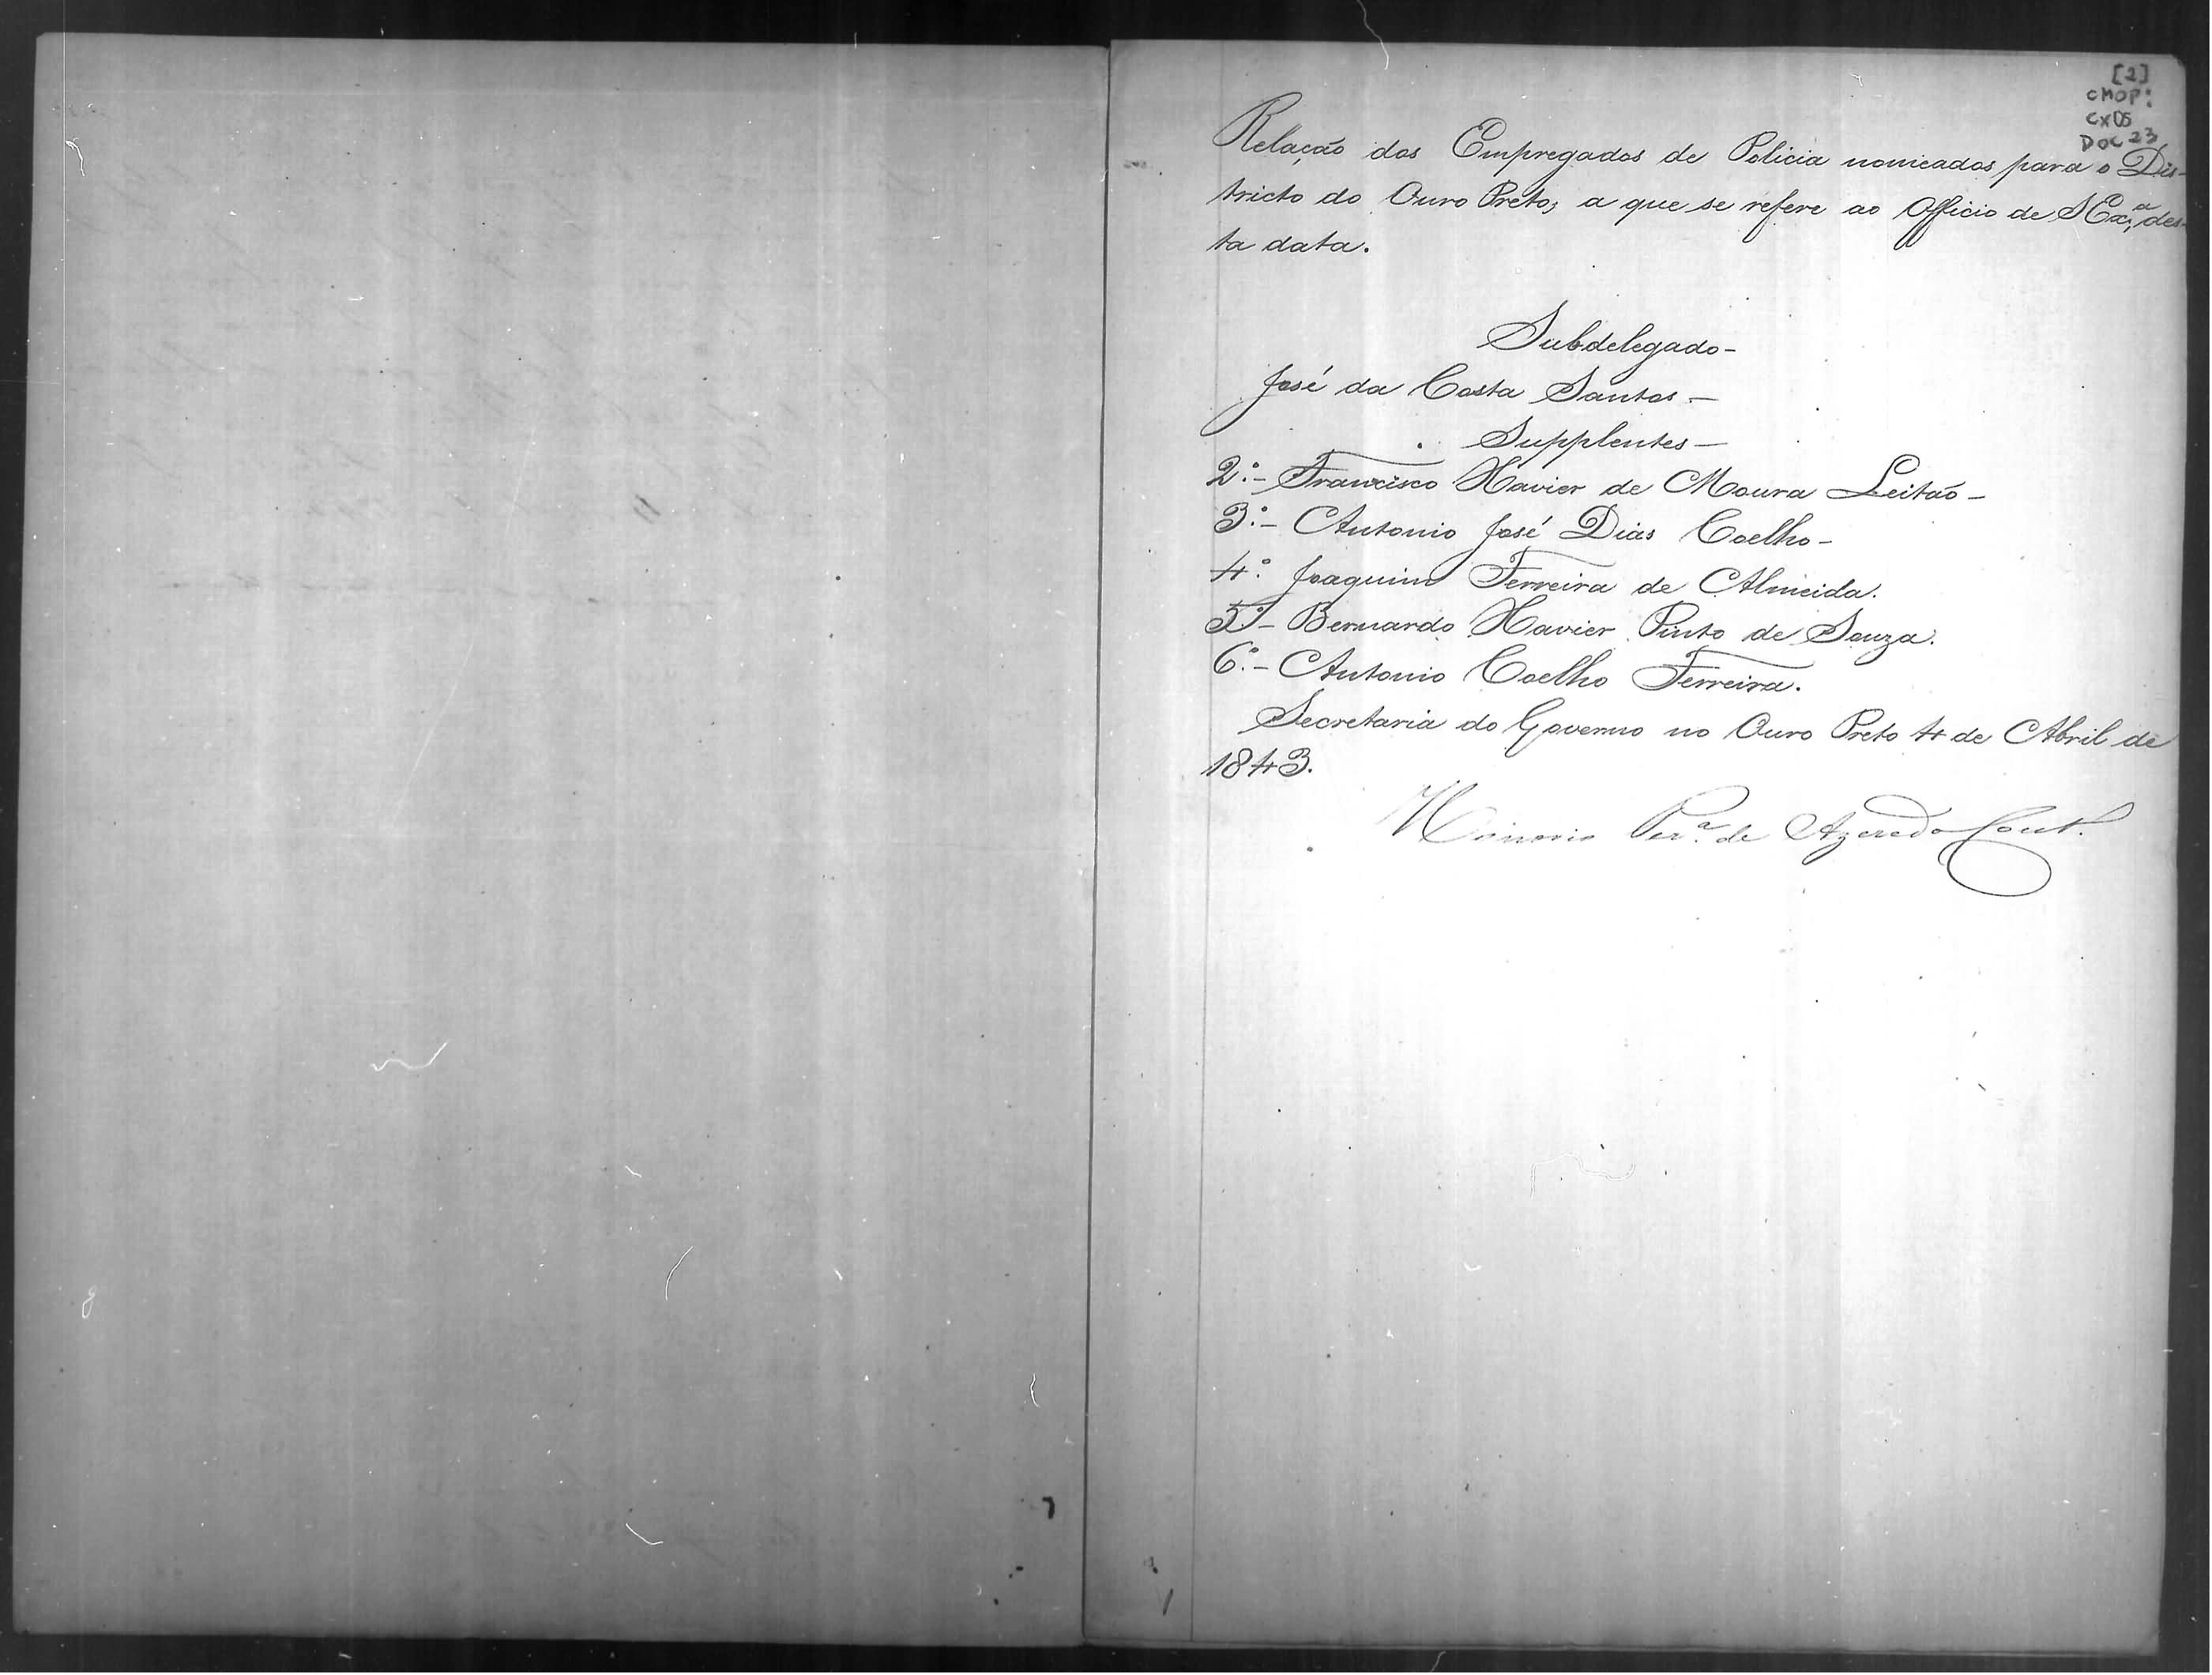 [2]
CMOP:
CX 05
DOC 23
Relação dos Empregados de Policia nomeados para o Dis-
tricto do Ouro Preto, a que se refere ao Officio de S Ex.ª, des-
ta data.
Subdelegado-
José da Costa Santos-
Supplentes-
2.º- Francisco Xavier de Moura Leitão-
3.º- Antonio José Dias Coelho-
4.º Joaquim Ferreira de Almeida.
5.º- Bernardo Xavier Pinto de Souza.
6.º- Antonio Coelho Ferreira.
Secretaria do Governo no Ouro Preto 4 de Abril de
1843.
Honorio Per.ª de Azeredo Cout.